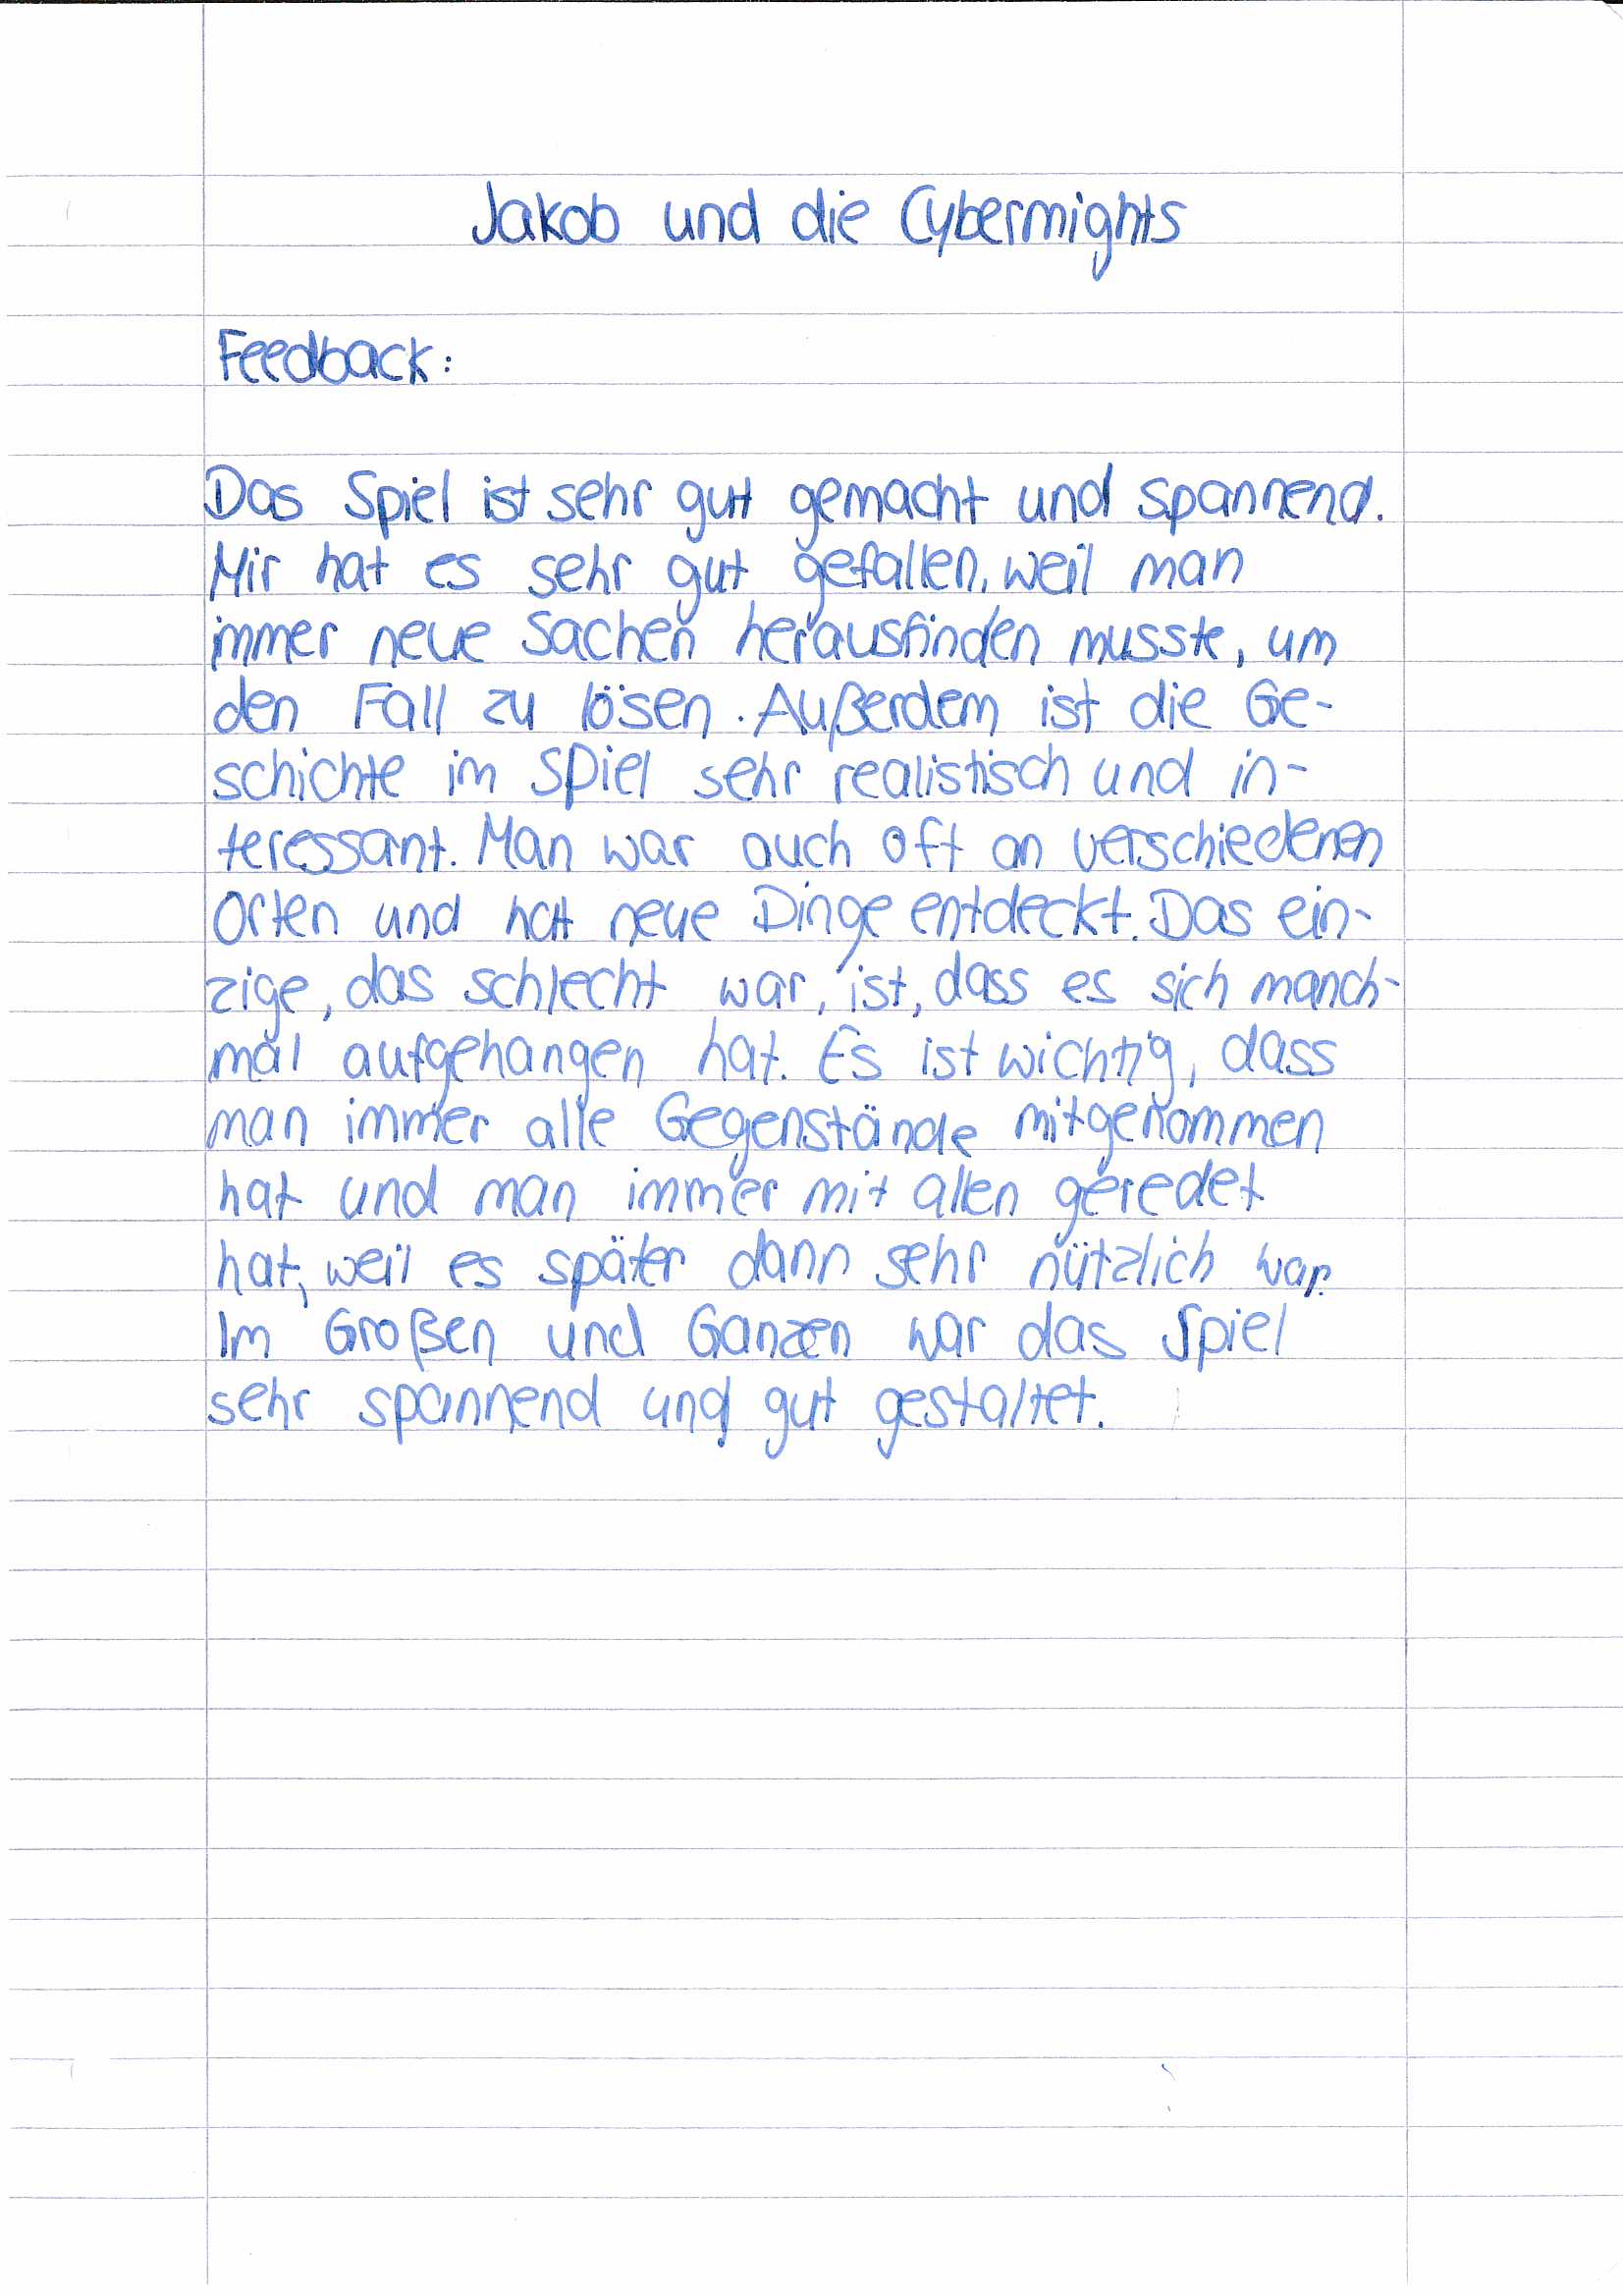 Jakob und die Cybermights
Feedback:
Das Spiel ist sehr gut gemacht und spannend.
Mir hat es sehr gut gefallen, weil man
immer neue Sachen herausfinden musste, um
den Fall zu lösen. Außerdem ist die Ge-
schichte im Spiel sehr realistisch und in-
teressant. Man war auch oft an verschiedenen
Orten und hat neue Dinge entdeckt. Das ein-
zige, das schlecht war, ist, dass es sich manch-
mal aufgehangen hat. Es ist wichtig, dass
man immer alle Gegenstände mitgenommen
hat und man immer mit allen geredet
hat, weil es später dann sehr nützlich war.
Im Großen und Ganzen war das Spiel
sehr spannend und gut gestaltet.